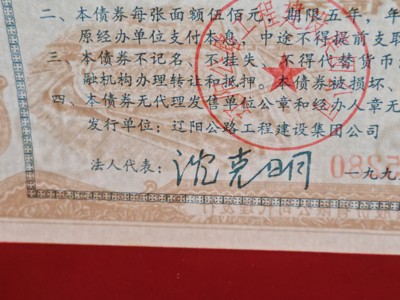 二、本债券每张面额伍佰元，期限五年，年
原经办单位支付本息，中途不得提前支取
三、本债券不记名、不挂失、不得代替货币
融机构办理转让和抵押。本债券被损坏、
四、本债券无代理发售单位公章和经办人章无
发行单位：辽阳公路工程建设集团公司
法人代表：沈克明 一九九
5280